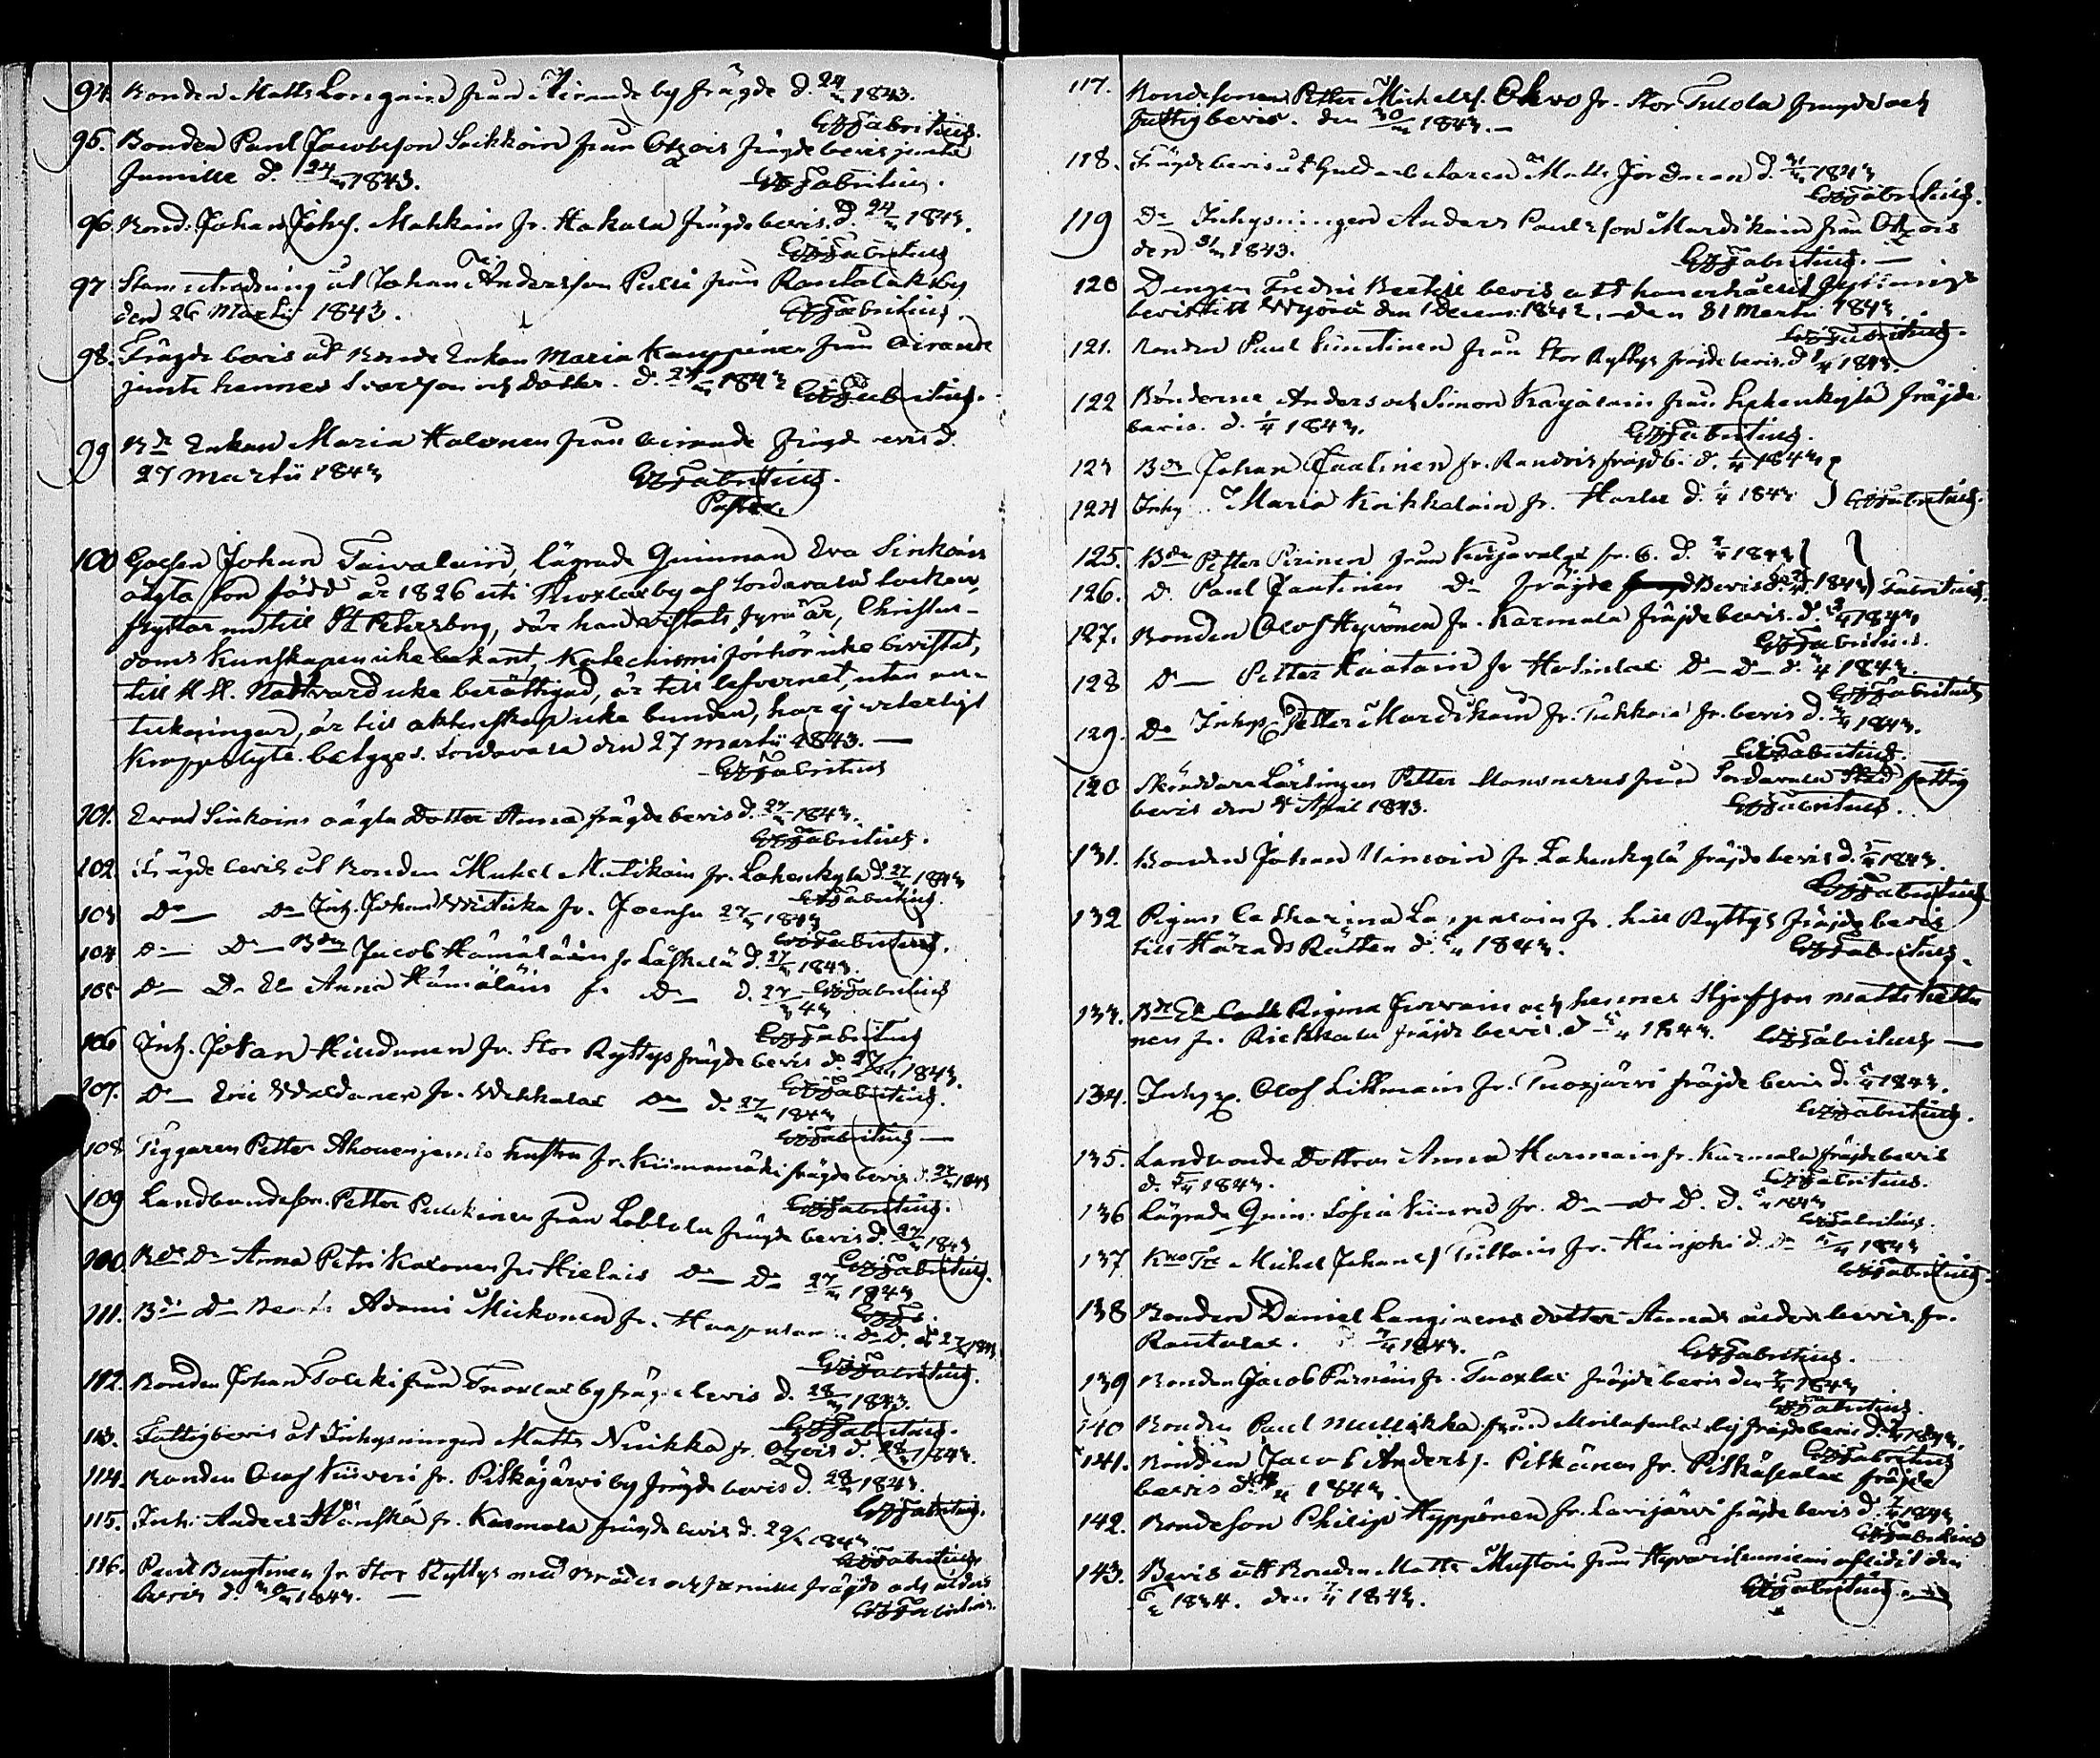 94. Bonden Matts Longain från Airanne by frägde d. 24/3 1843.
GFabritius.
95. Bonden Paul Jacobsson Soikkain från Otsois frägdebevis jemte
familie d. 24/3 1843. GFabritius.
96. Bond. Johan Johs. Mahkain fr. Hakala frägdebevis. d. 24/3 1843.
GFabritius
97 Stamutredning åt Johan Andersson Pulli från Rantalaksby
den 26 Martii 1843. GFabritius.
98. Frägde bevis åt Bonde Enkan Maria Kauppinen från Airanne
jemte hennes Svärson och Dotter. d. 27/3 1843 GFabritius.
99 Bde Enkan Maria Halonen från Airanne frägdebevis d.
27 Martii 1843 GFabritius.
Pastor.
100 Gossen Johan Taivalain, lägrade Quinnan Eva Sinkoins
oägta son född år 1826 uti Tuoxlaxby af Sordavala Socken,
flyttar nu till St Petersborg, där han vistats fyra år, Christen-
doms kunskapen icke bekant, Katechismi förhör icke bevistat,
till H.H. Nattvard icke berättigad, är till lefvernet, utan an-
teckningar, är till äktenskap icke bunden, har ej veterligt
Kroppslyte. betyges. Sordavala den 27 Martii 1843. —
GFabritius
101. Evas Sinkoins oägta Dotter Anna frägdebevis d. 27/3 1843.
GFabritius.
102. Frägde bevis åt Bonden Michel Mutikain fr. Lahenkylä d. 27/3 1843
GFabritius.
103 Do Do Inh. Johan Wituka fr. Joensu 27/3 1843
GFabritius.
104 Do Do Bdn Jacob Hämäläin fr Läskelä d. 27/3 1843.
GFabritius
105 Do Do El Anna Hämäläin fr Do d. 27/3 43
GFabritius
106 Inh. Johan Hindunen fr. Stor Ryttys frägde bevis d. 27/3 1843.
GFabritius.
107. Do Eric Waldanen fr. Wekkalax Do d. 27/3 1843
GFabritius —
108 Tiggaren Petter Ahonen jemte hustru fr. Kiimamäki frägdebevis d. 27/3 1843
GFabritius.
109 Landbondeson Petter Puukinen från Leblola frägde bevis d. 27/3 1843
GFabritius.
100. Bde Dr Anna Petri Kaxonen fr Hielais Do Do 27/3 1843
GF.
111. Bde Dr Adami Mickonen fr. Haapalam Do Do d 27/3 1843
GFabritius.
112. Bonden Johan Tolcki från Tuoxlaxby frägdebevis d. 28/3 1843.
GFabritius.
113. Fattigbevis åt Inhysningen Matts Nuikka fr. Otsois d. 28/3 1843.
114. Bonden Olof Kiiveri fr. Pitkäjärvi by frägde bevis d. 28/3 1843.
GFabritius.
115. Inh. Anders Hänskä fr. Karmala frägdebevis d. 29/3 1843
GFabritius
116. Paul Bengtinen fr Stor Ryttys med Bröder och familie frägde och ålders
bevis d. 30/3 1843. — GFabritius.
117. Bondesonen Petter Michelss. Okvo fr. Stor Tulola frägde och
fattigbevis. den 30/3 1843. —
118. Frägdebevis åt Guldarbetaren Matts Jordman d. 31/3 1843
GFabritius.
119 Do Inhysningen Anders Paulsson Mardikain från Otsois
den 31/3 1843. GFabritius. —
120 Drengen Fredric Bertill bevis att han erhållit flyttnings
bevis till Wiborg den 1 Decem 1842. den 31 Martii 1843.
GFabritius.
121. Bonden Paul Suntinen från Stor Ryttys fräjdebevis. d. 1/4 1843.
122 Bönderne Anders och Simon Kajalain från Lahenkylä fräjde
bevis. d. 1/4 1843. GFabritius.
123 Bdn Johan Jaatinen fr. Randois fräjdb. d. 1/4 1843
124 Inhy. Maria Koikkalain fr. Harlu d. 1/4 1843 GFabritius.
125. Bdn Petter Pirinen från Kirjavalax fr. b. d. 2/4 1843
126. d. Paul Jantinen Do fräjde Bevis d. 2/4 1843 Fabritius.
127. Bonden Olof Hyvönen fr. Karmala fräjdebevis. d. 3/4 1843
GFabritius.
128 Do Petter Kaatain fr Helilax Do Do d. 3/4 1843.
GFabritius
129. Do Inhys. Petter Mardikain fr. Tuhkola fr. bevis d. 3/4 1843.
GFabritius.
120 Skräddare Lärlingen Petter Monsnerus från Sordavala Stad fattig
bevis den 4 April 1843. GFabritius.
131. Bonden Johan Uimoin fr. Lahenkylä fräjdebevis d. 5/4 1843.
GFabritius
132 Pigan Catharina Lappalain fr. lill Ryttys fräjde bevis
till Härads Rätten d. 5/4 1843. GFabritius.
133. Bde En Regina Jurvain och hennes Styfson Matts Kettu
nen fr. Riekkala fräjde bevis. d 5/4 1843. GFabritius —
134. Inhys. Olof Littmain fr. Tuoxjärvi fräjde bevis d. 5/4 1843.
GFabritius.
135. Landbonde Dottren Anna Harmain fr. Karmala fräjdebevis
d. 5/4 1843. GFabritius.
136 Lägrade Quin. Sofia Siiven fr. Do — Do D. d. 5/4 1843
GFabritius.
137 Michel Johanss Tuttain fr. Heinjoki d. Do 5/4 1843
GFabritius.
138 Bonden Daniel Langinens dotter Annas ålders bevis. fr.
Rantalax. 7/4 1843. GFabritius.
139 Bonden Jacob Pärnäin fr. Tuoxlax fräjde bevis den 7/4 1843
GFabritius.
140 Bonden Paul Mullikka från Moilasenlax by fräjdebevis d. 7/4 1843.
GFabritius
141. Bonden Jacob Anderss. Pitkänen fr. Pitkäsalax fräjde
bevis d. 7/4 1843.
142. Bondeson Philip Hyppönen fr. Lavijärvi fräjde bevis d. 7/4 1843
GFabritius
143. Bevis att Bonden Matts Mustoin från Hyvärisenniemi aflidit den
1834. den 7/4 1843. GFabritius.